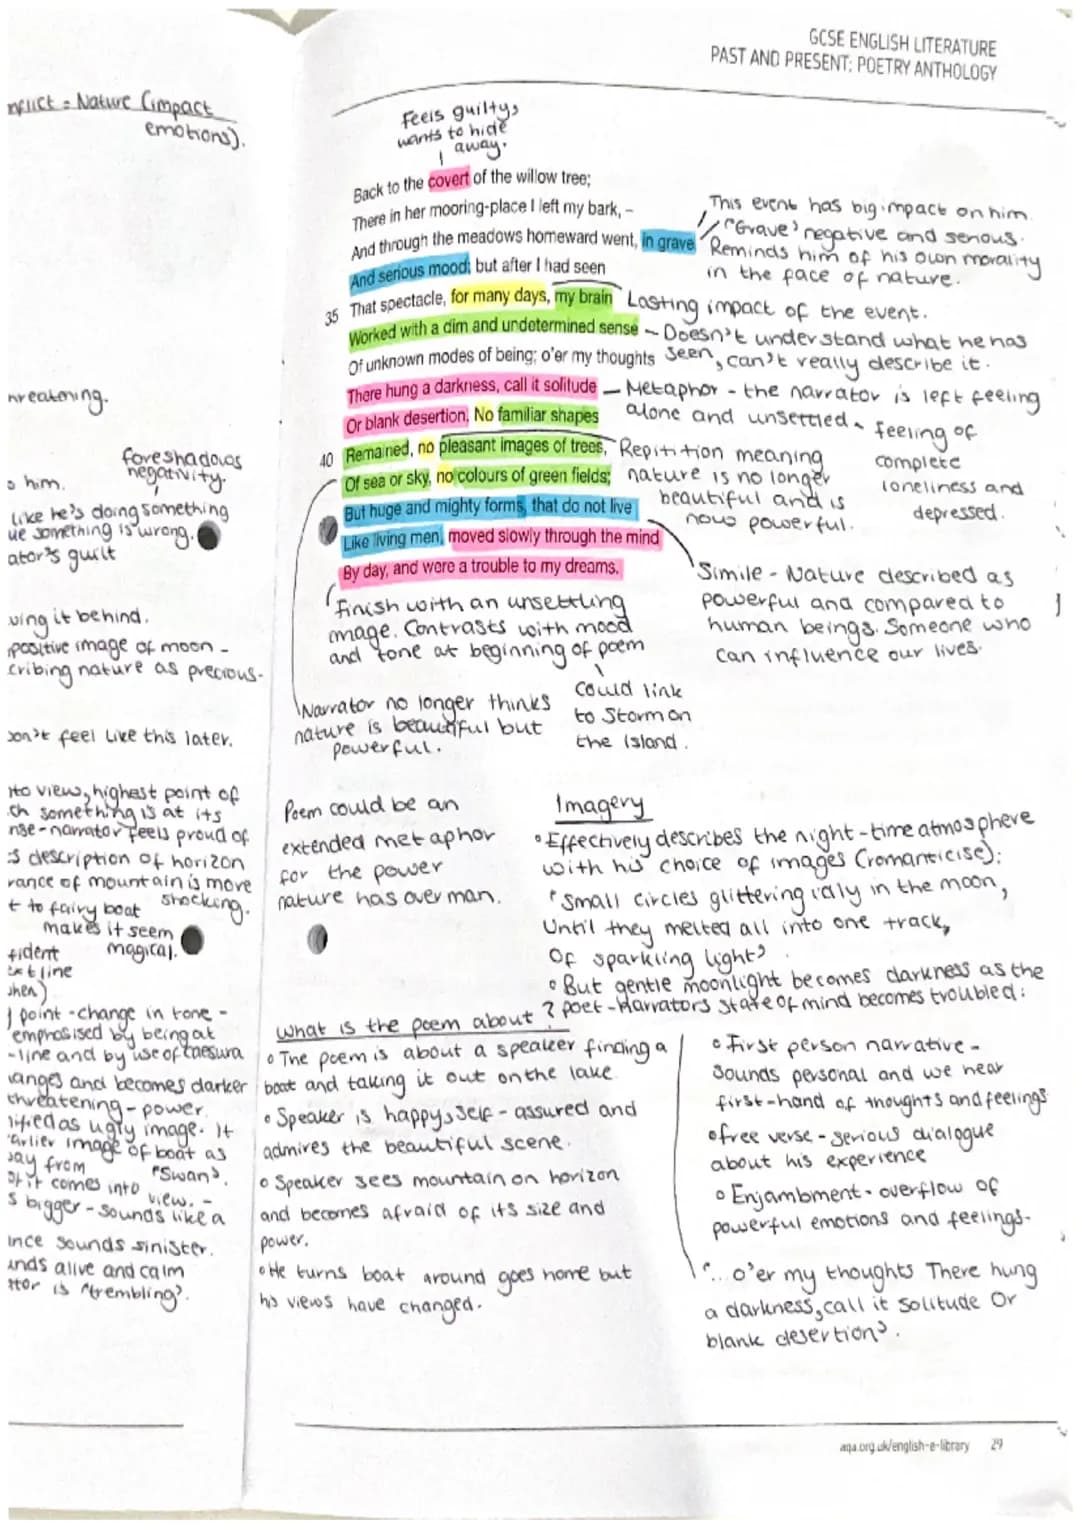 GCSE ENGLISH LITERATURE
PAST AND PRESENT: POETRY ANTHOLOGY
= Nature (impact
emotions).
Feels guilty,
wants to hide
away.
Back to the covert of the willow tree;
There in her mooring-place I left my bark, –
And through the meadows homeward went, in grave
And serious mood; but after I had seen
35 That spectacle, for many days, my brain
Worked with a dim and undetermined sense
Of unknown modes of being; o'er my thoughts
There hung a darkness, call it solitude
Or blank desertion. No familiar shapes
40 Remained, no pleasant images of trees,
Of sea or sky, no colours of green fields;
But huge and mighty forms, that do not live
Like living men, moved slowly through the mind
By day, and were a trouble to my dreams.
This event has big impact on him.
"Grave" negative and serious.
Reminds him of his own morality
in the face of nature.
Lasting impact of the event.
Doesn't understand what he has
seen, can't really describe it.
Metaphor - the narrator is left feeling
alone and unsettled.
feeling of
complete
loneliness and
depressed.
Repitition meaning
nature is no longer
beautiful and is
now powerful.
Simile - Nature described as
powerful and compared to
human beings. Someone who
can influence our lives.
finish with an unsettling
image. Contrasts with mood
and tone at beginning of poem
Could link
to Storm on
the Island.
Narrator no longer thinks
nature is beautiful but
powerful.
foreshadows
negativity.
him.
like he's doing something
something is wrong.
guilt
it behind.
positive image of moon -
nature as precious.
feel like this later.
view, highest point of
something is at its
narrator feels proud of
description of horizon
of mountain is more
shocking.
to fairy boat
makes it seem
magical.
point - change in tone -
emphasised by being at
line and by use of caesura
and becomes darker
threatening - power.
as ugly image. It
image of boat as
from "Swan".
it comes into view. -
bigger - sounds like a
sounds sinister.
alive and calm
is "trembling".
Poem could be an
extended metaphor
for the power
nature has over man.
Imagery
• Effectively describes the night-time atmosphere
with his choice of images (romanticise):
"Small circles glittering idly in the moon,
Until they melted all into one track,
Of sparkling light"
• But gentle moonlight becomes darkness as the
poet-narrators state of mind becomes troubled:
What is the poem about?
• The poem is about a speaker finding a
boat and taking it out on the lake
• Speaker is happy, self-assured and
admires the beautiful scene.
• Speaker sees mountain on horizon
and becomes afraid of its size and
power.
• He turns boat around goes home but
his views have changed.
• First person narrative -
Sounds personal and we hear
first-hand of thoughts and feelings
• free verse - serious dialogue
about his experience
• Enjambment - overflow of
powerful emotions and feelings.
"... o'er my thoughts There hung
a darkness, call it solitude Or
blank desertion".
aqa.org.uk/english-e-library 29